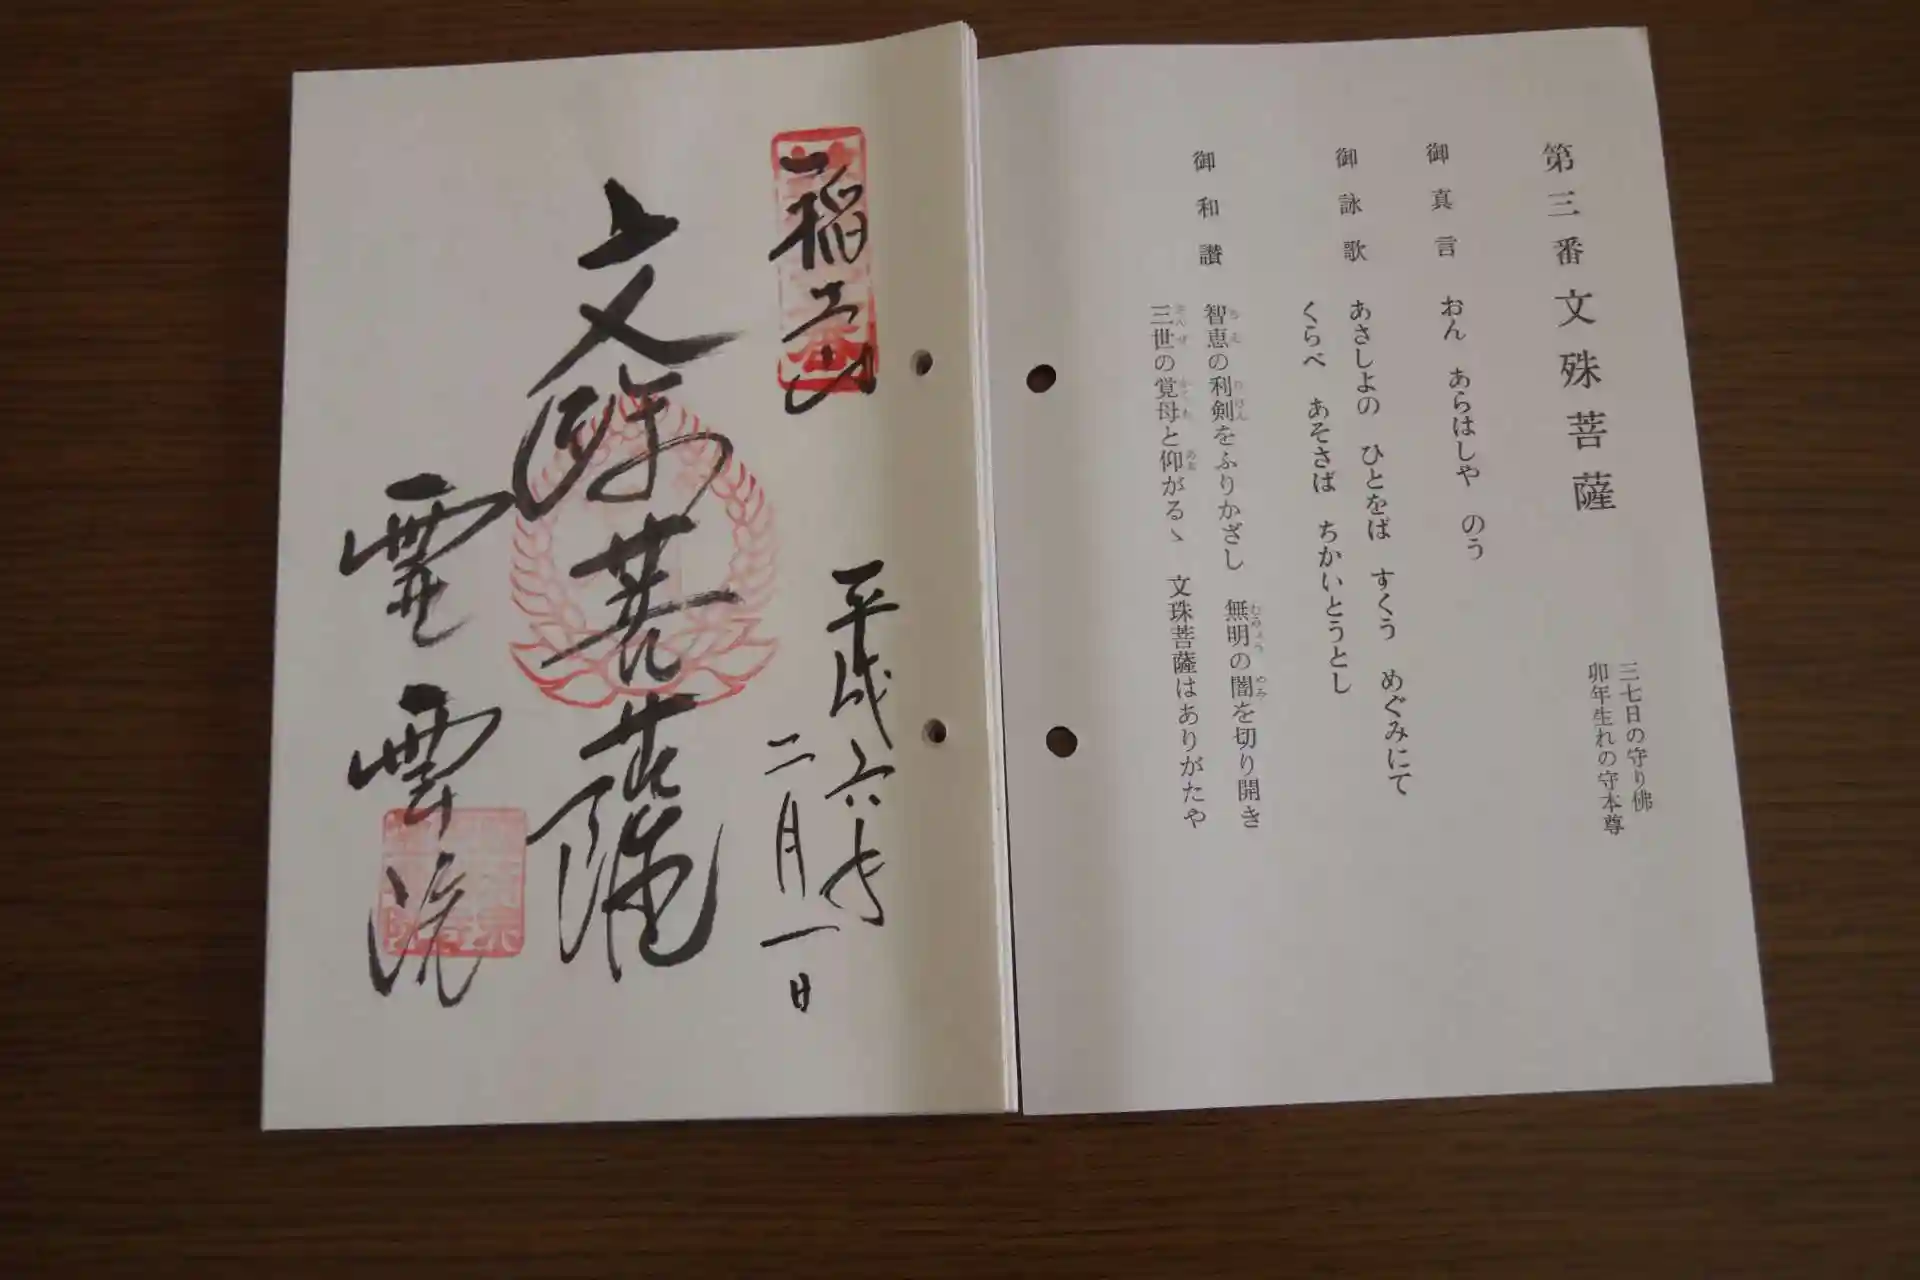 第三番 文殊菩薩
三七日の守り佛
卯年生れの守本尊
御真言 おん あらはしや のう
御詠歌 あさしよの ひとをば すくう めぐみにて
くらべ あそさば ちかいとうとし
御和讃 智恵の利剣をふりかざし 無明の闇を切り開き
三世の覚母と仰がるゝ 文珠菩薩はありがたや
平成六年
二月一日
文殊菩薩